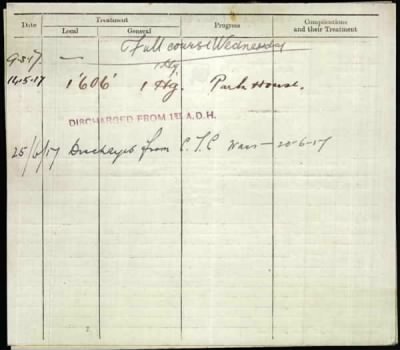 Date Treatment Progress Complications and their Treatment
Local General
Full course Wednesday
9.3.17. — 1 Hg.
14.5.17 1 '606' 1 Hg. Park House.
DISCHARGED FROM 1st A.D.H.
25/6/17 Discharged from C. T. C — 20-6-17